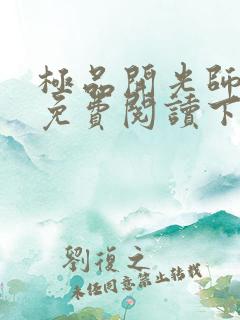 極品開光師
免費閱讀下
劉復之
未经同意禁止转载